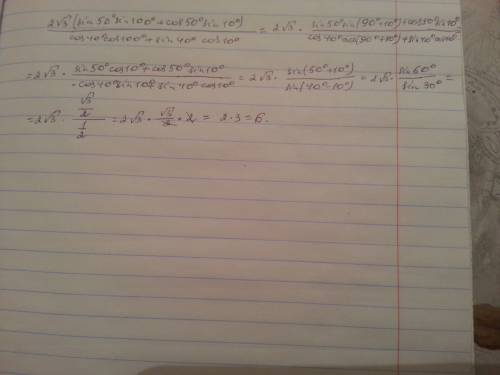 2√3 (sin50° sin100° + cos50° sin10°) / cos40° cos100° + sin40° cos10° = 2√3 · sin50° sin(90°+10°) + cos50° sin10° / cos40° cos(90°+10°) + sin40° cos10°
= 2√3 · sin50° cos10° + cos50° sin10° / -cos40° sin10° + sin40° cos10° = 2√3 · sin(50°+10°) / sin(40°-10°) = 2√3 · sin60° / sin30° =
= 2√3 · √3/2 / 1/2 = 2√3 · √3/2 · 2 = 2·3 = 6.